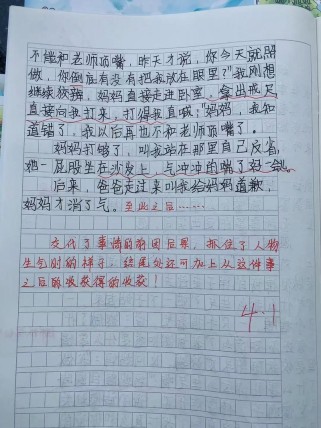 不能和老师顶嘴，昨天才说，你今天就照
做，你倒底有没有把我放在眼里？"我刚想
继续狡辩，妈妈直接走进卧室，拿出戒尺
直接向我打来，打得我直喊："妈妈，我知
道错了。我以后再也不和老师顶嘴了。
妈妈打够了，叫我站在那里自己反省，
她一屁股坐在沙发上，气冲冲的喘了好一会。
后来，爸爸走过来叫我给妈妈道歉，
妈妈才消了气。至此之后……
交代了事情的前因后果，抓住了人物
生气时的样子，结尾处还可加上从这件事
之后的收获得的收获！
4.1